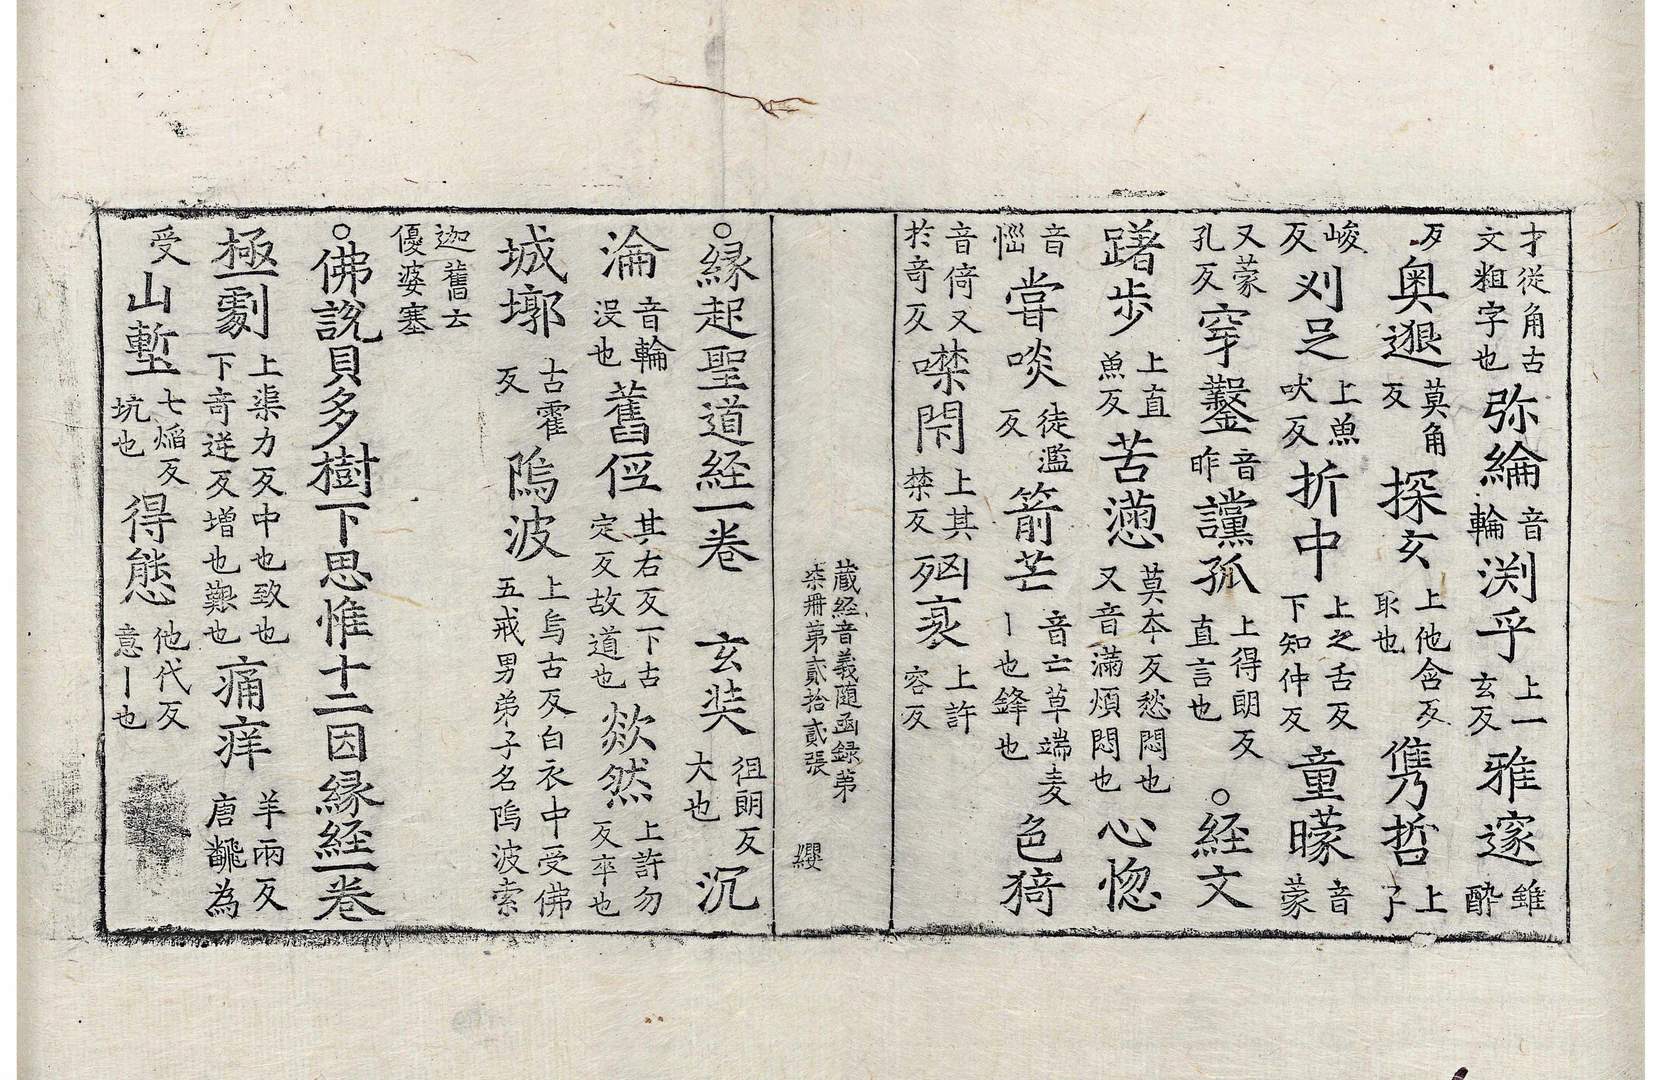 才從角古文粗字也弥綸音輪渕乎上一玄反雅邃錐醉
反奧邈莫角反探玄上他含反取也儁哲上子
峻反刈足上魚吠反折中上之舌反下知仲反童矇音蒙
又蒙孔反穿鑿音昨讜孤上得朗反直言也○経文
躇步上直魚反苦懑莫夲反愁悶也又音滿煩悶也心惚
音㥧甞啖徒濫反箭芒音亡草端麦丨也鋒也色猗
音倚又於竒反噤閇上其禁反兇衺上許容反
藏経音義随函録弟柒冊第貳拾貳張 纓
○縁起聖道経一巻 玄奘徂朗反大也沉
淪音輪没也舊徑其右反下古定反故道也欻然上許勿反卒也
城墎古霍反隖波上烏古反白衣中受佛五戒男弟子名隖波索
迦舊云優婆塞
○佛說貝多樹下思惟十二因縁経一巻
極劇上渠力反中也致也下竒逆反增也艱也痛痒羊兩反唐韻為
受山塹七焰反坑也得態他代反意丨也